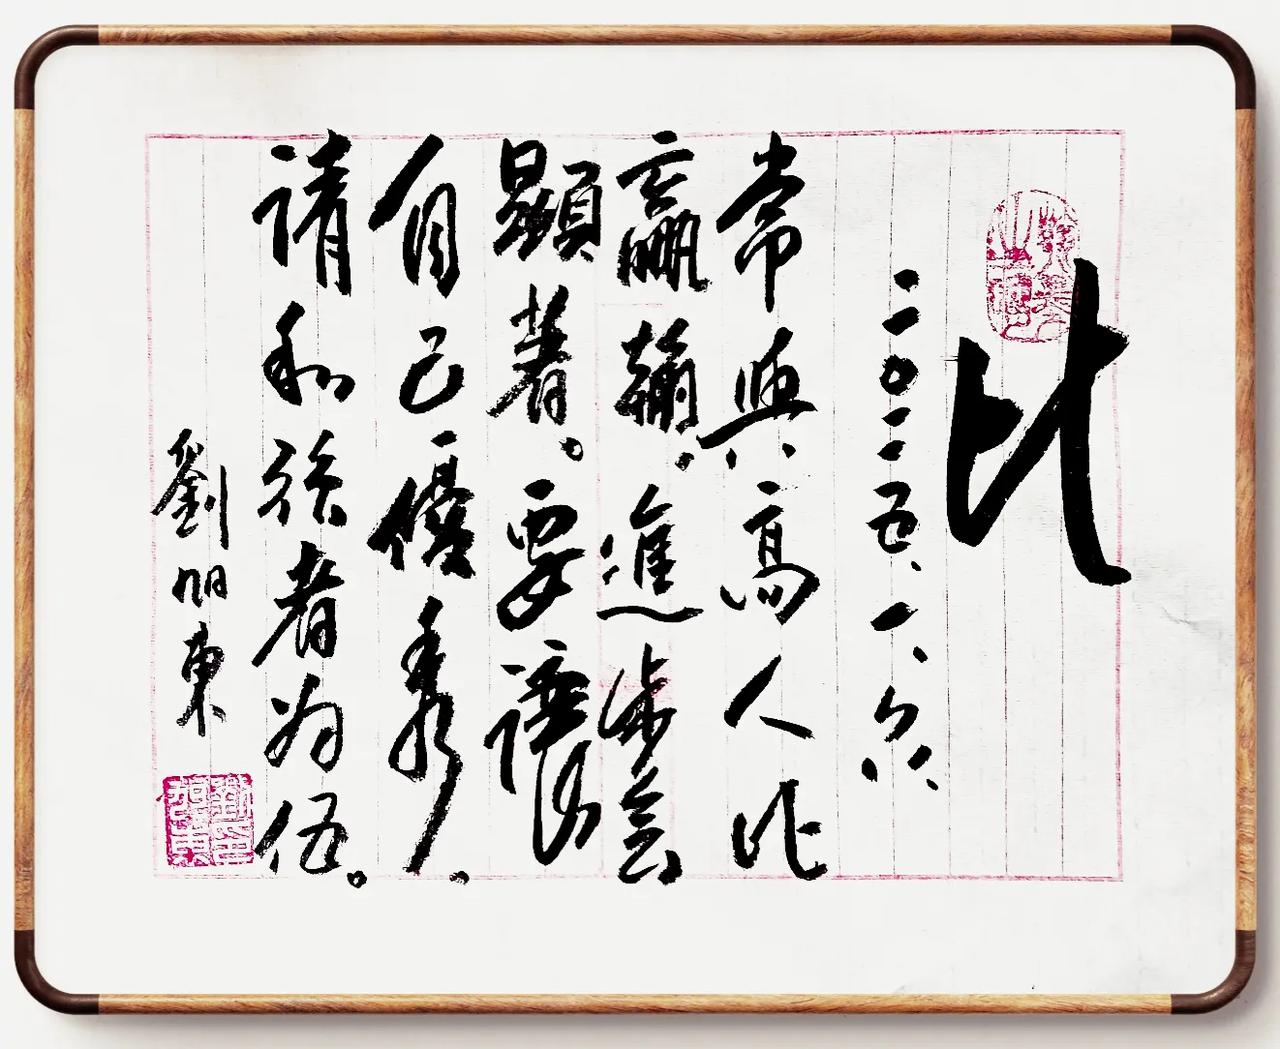 比
二〇二五、一、六
常與高人比
贏輸，進步會
顯著。要讓
自己優秀，
請和強者為伍。
劉旭東